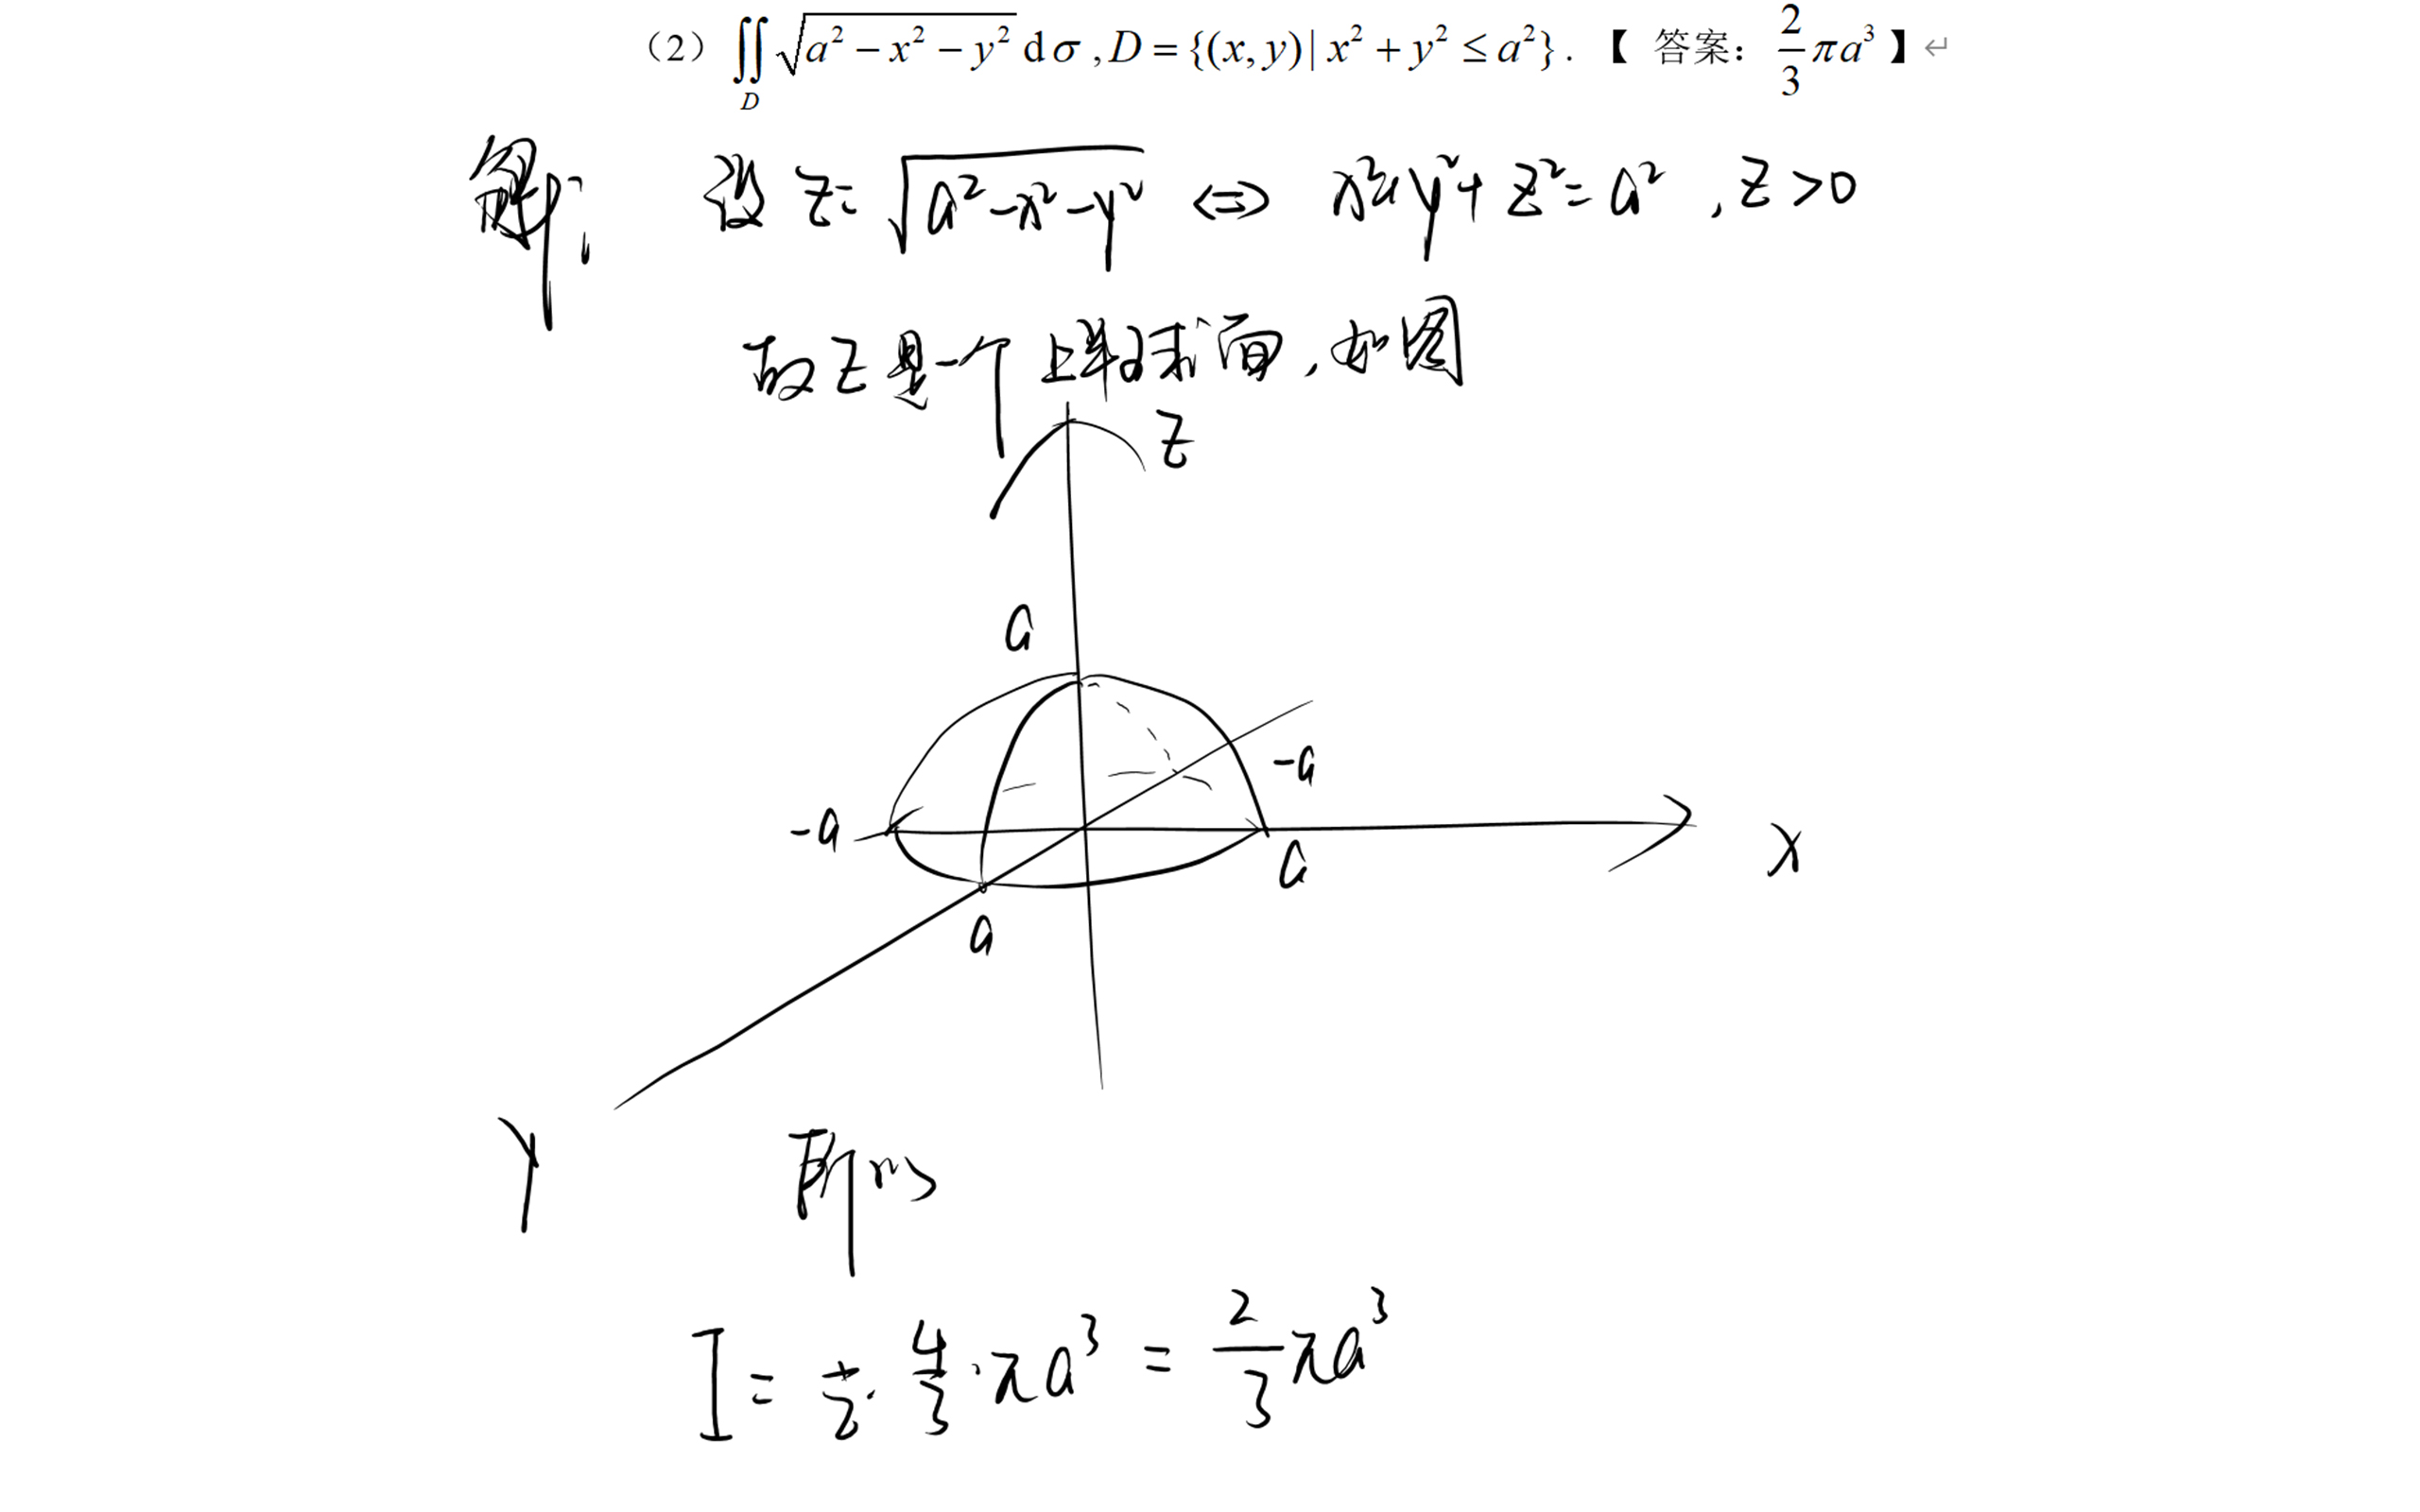 (2) ∬_D √(a² − x² − y²) dσ, D = {(x, y) | x² + y² ≤ a²}. 【 答案: 2/3 πa³ 】↵
解:
设 z = √(a²-x²-y²) ⇔ x²+y²+z²=a², z>0
故z是一个上半球面,如图
z
a
-a
-a
a
x
a
y
所以
I = 1/2 · 4/3 · πa³ = 2/3 πa³